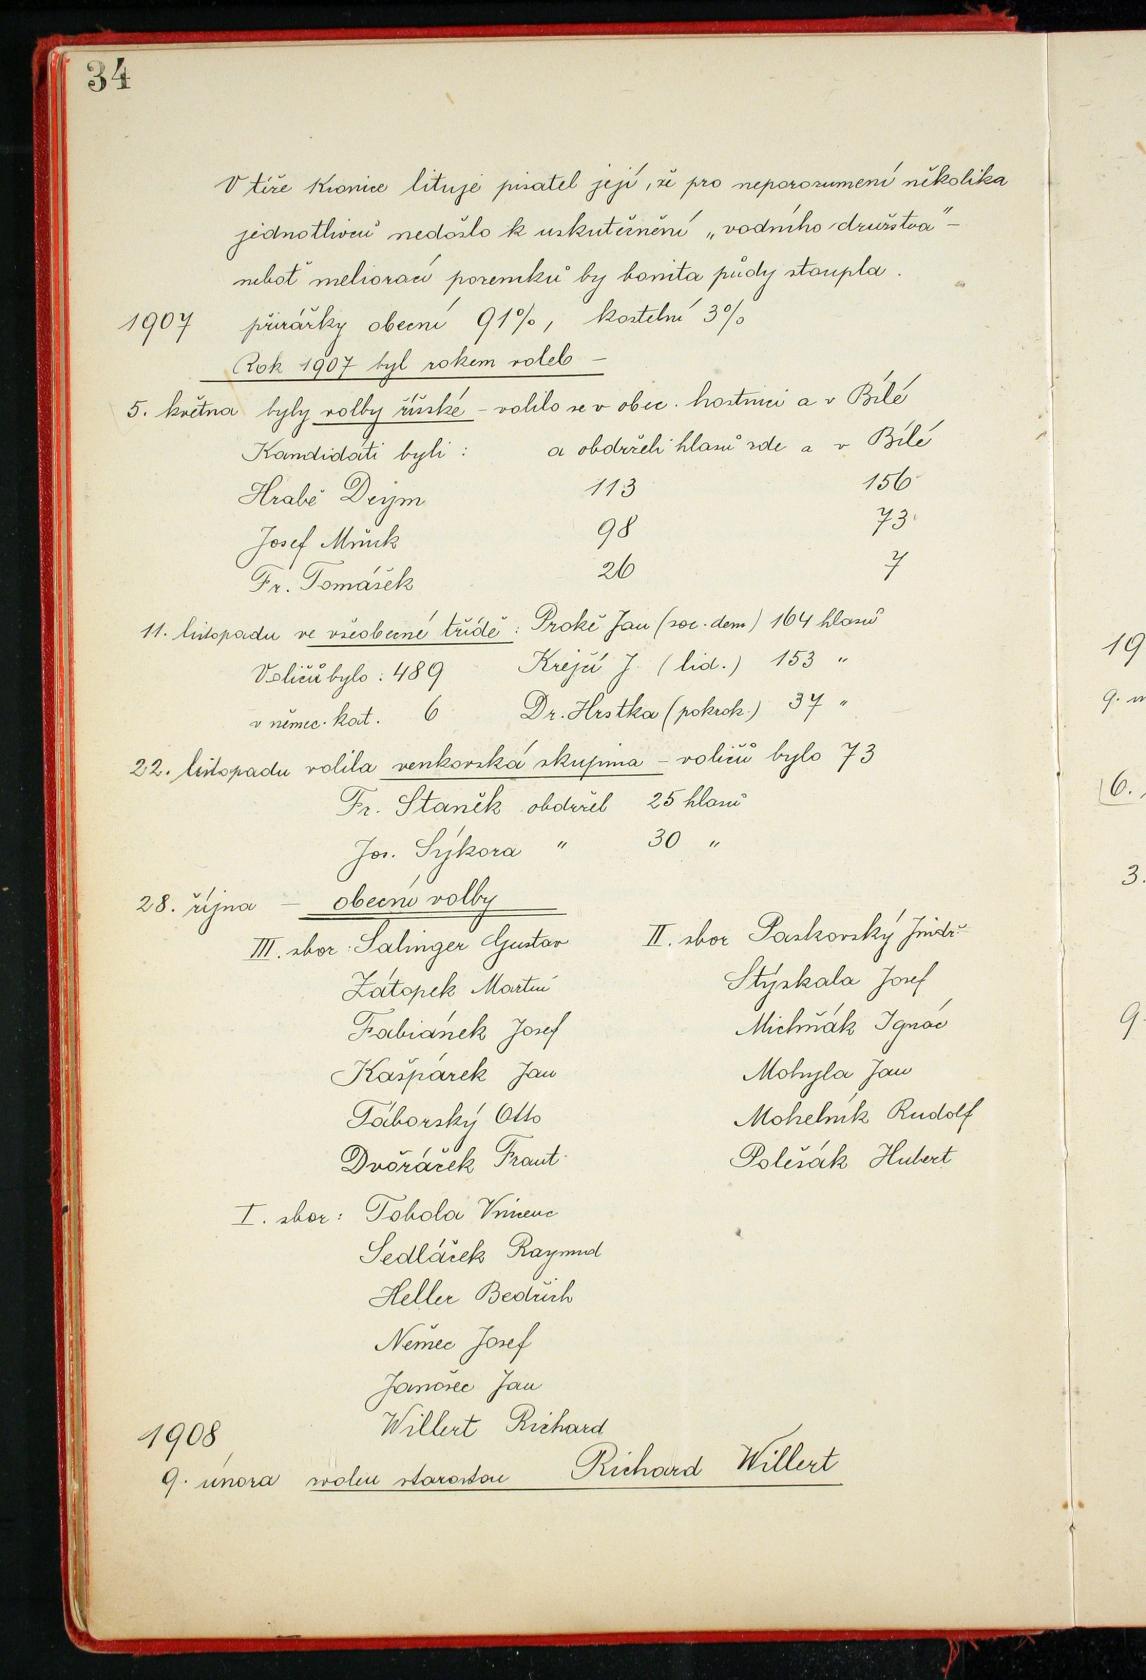 34
V téže kronice lituje pisatel její, že pro neporozumění několika
jednotlivců nedošlo k uskutečnění „vodního družstva" –
neboť meliorací pozemků by bonita půdy stoupla.
1907 přirážky obecní 91%, kostelní 3%
Rok 1907 byl rokem voleb –
5. května byly volby říšské – volilo se v obec. hostinci a v Bílé
Kandidáti byli : a obdrželi hlasů zde a v Bílé
Hrabě Deym 113 156
Josef Mrňuk 98 73
Fr. Tomášek 26 7
11. listopadu ve všeobecné třídě : Prokš Jan (soc. dem) 164 hlasů
Voličů bylo : 489 Krejčí J. (lid.) 153 "
v němec. kat. 6 Dr. Hrstka (pokrok.) 37 "
22. listopadu volila venkovská skupina – voličů bylo 73
Fr. Staněk obdržel 25 hlasů
Jos. Sýkora " 30 "
28. října – obecní volby
III. sbor : Salinger Gustav II. sbor Paskovský Jindř.
Zátopek Martin Stýskala Josef
Fabiánek Josef Michňák Ignác
Kašpárek Jan Mohyla Jan
Táborský Otto Mohelník Rudolf
Dvořáček Frant. Polešák Hubert
I. sbor : Tobola Vincenc
Sedláček Raymund
Heller Bedřich
Němec Josef
Janošec Jan
Willert Richard
1908
9. února zvolen starostou Richard Willert
19
9.
6.
3.
9.